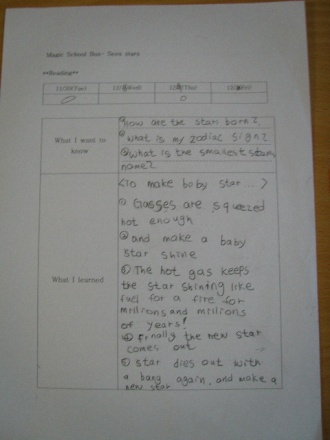 Magic School Bus- Sees stars
**Reading**
11/30(Tue) (Wed) (Thu)
What I want to know
① How are the star born?
② what is my zodiac sign?
③ what is the smallest stars name?
What I learned
<to make baby star ...>
① Gasses are squeezed
hot enough
② and make a baby
star shine
③ The hot gas keeps
the star shining like
fuel for a fire for
millions and millions
of years!
④ Finally the new star
comes out
⑤ star dies out with
a bang again, and make a
new star